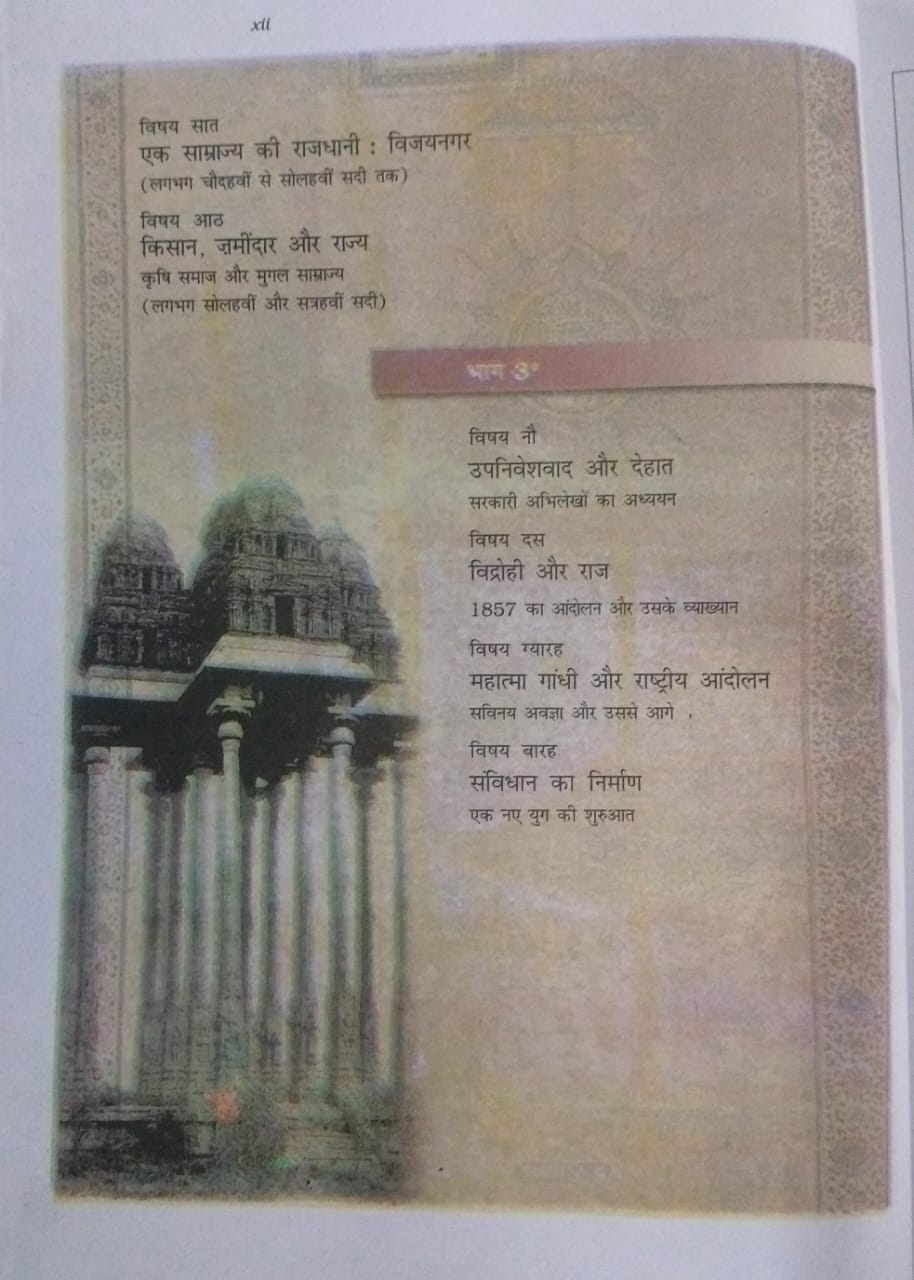 xii
विषय सात
एक साम्राज्य की राजधानी : विजयनगर
(लगभग चौदहवीं से सोलहवीं सदी तक)
विषय आठ
किसान, ज़मींदार और राज्य
कृषि समाज और मुगल साम्राज्य
(लगभग सोलहवीं और सत्रहवीं सदी)
भाग 3*
विषय नौ
उपनिवेशवाद और देहात
सरकारी अभिलेखों का अध्ययन
विषय दस
विद्रोही और राज
1857 का आंदोलन और उसके व्याख्यान
विषय ग्यारह
महात्मा गांधी और राष्ट्रीय आंदोलन
सविनय अवज्ञा और उससे आगे
विषय बारह
संविधान का निर्माण
एक नए युग की शुरुआत